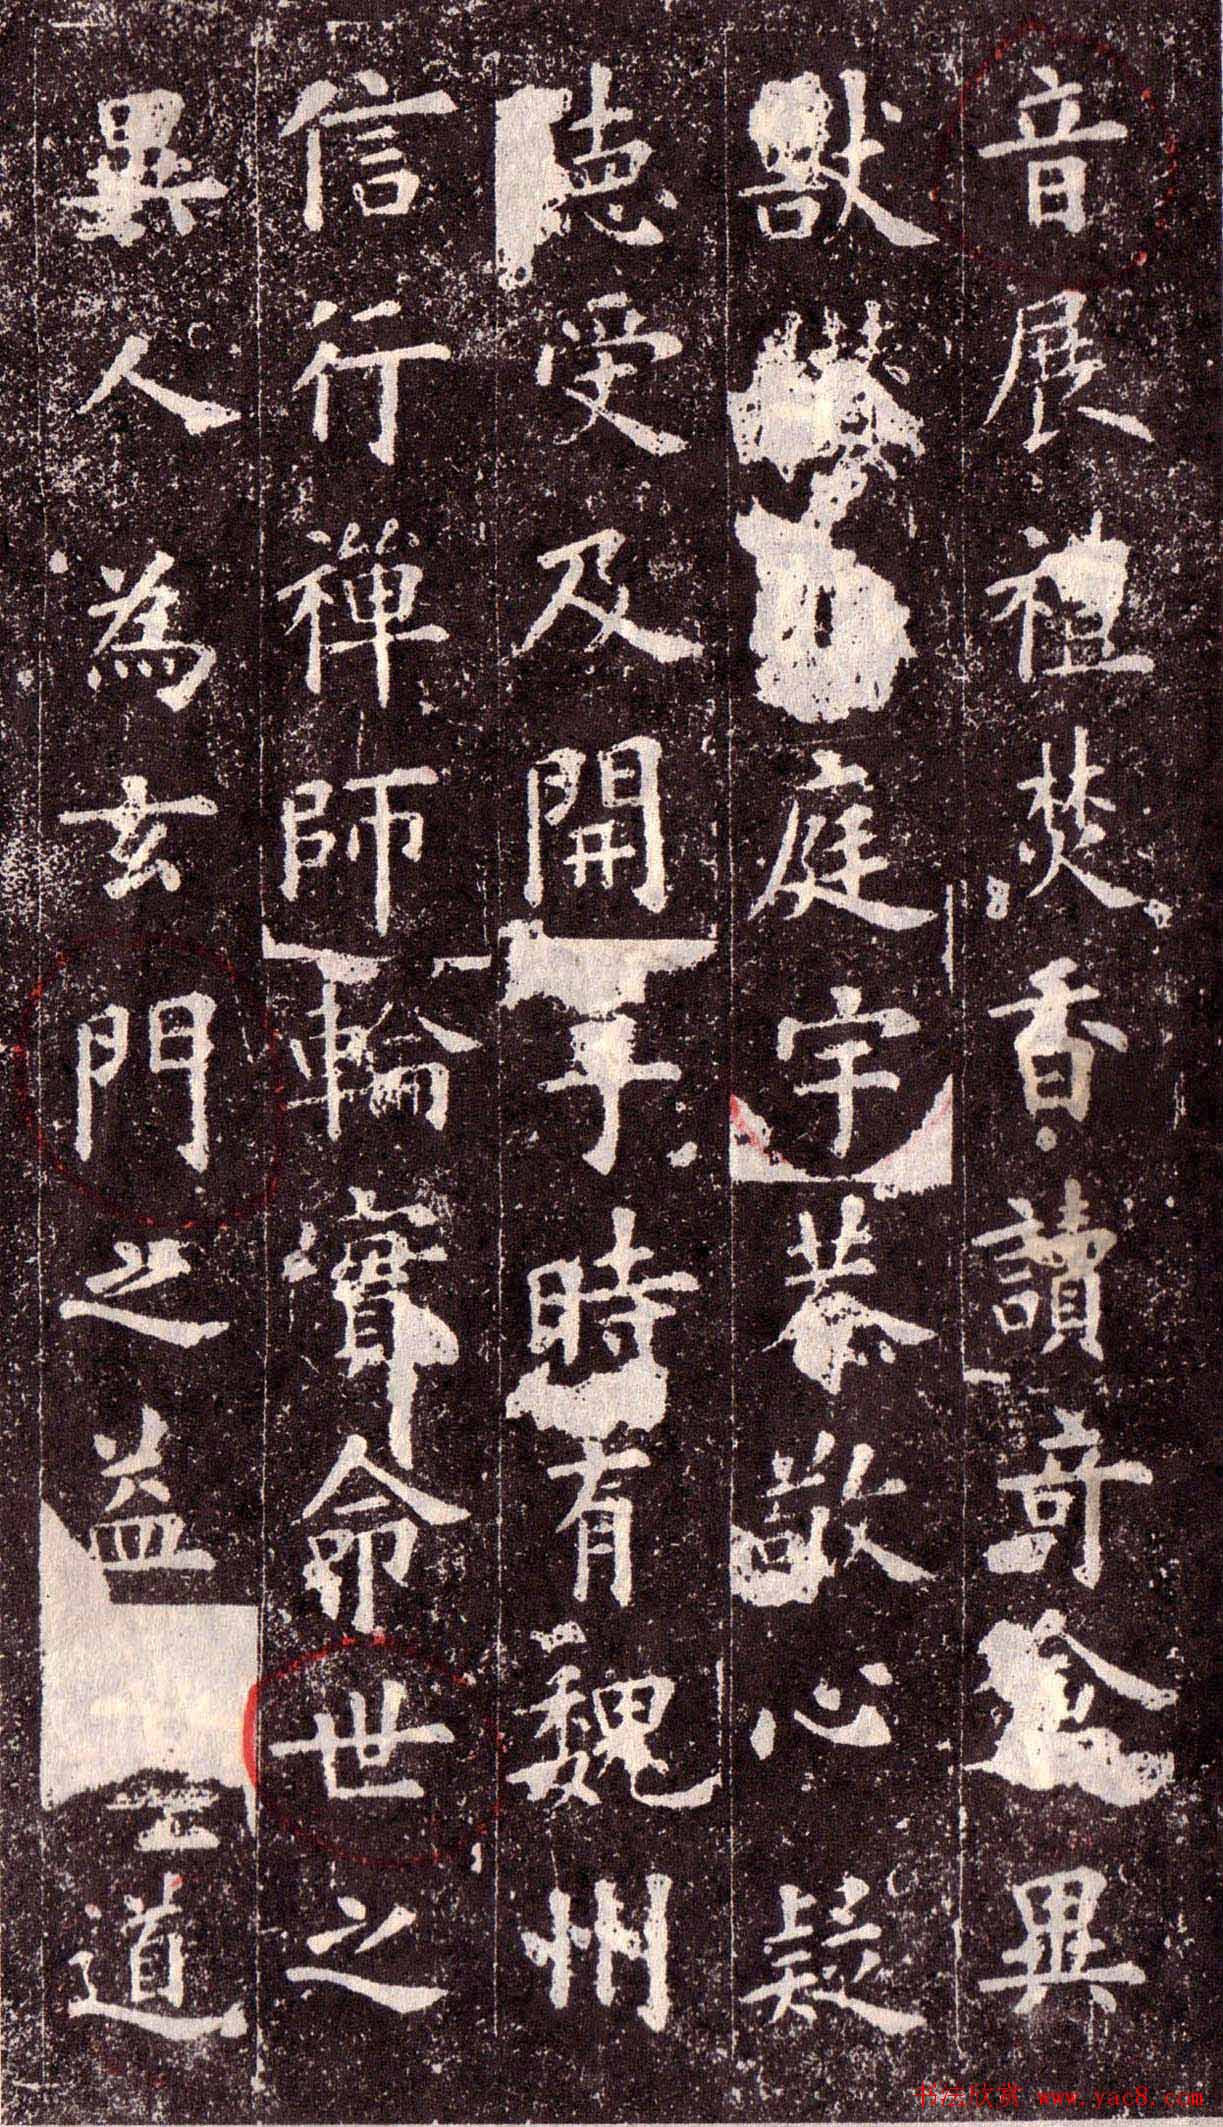 音展禮焚香讀奇禽異
獸 庭宇恭敬心疑
德受及開平時有魏州
信行禪師輪寶命世之
異人為玄門之益 至道
书法欣赏 www.yac8.com